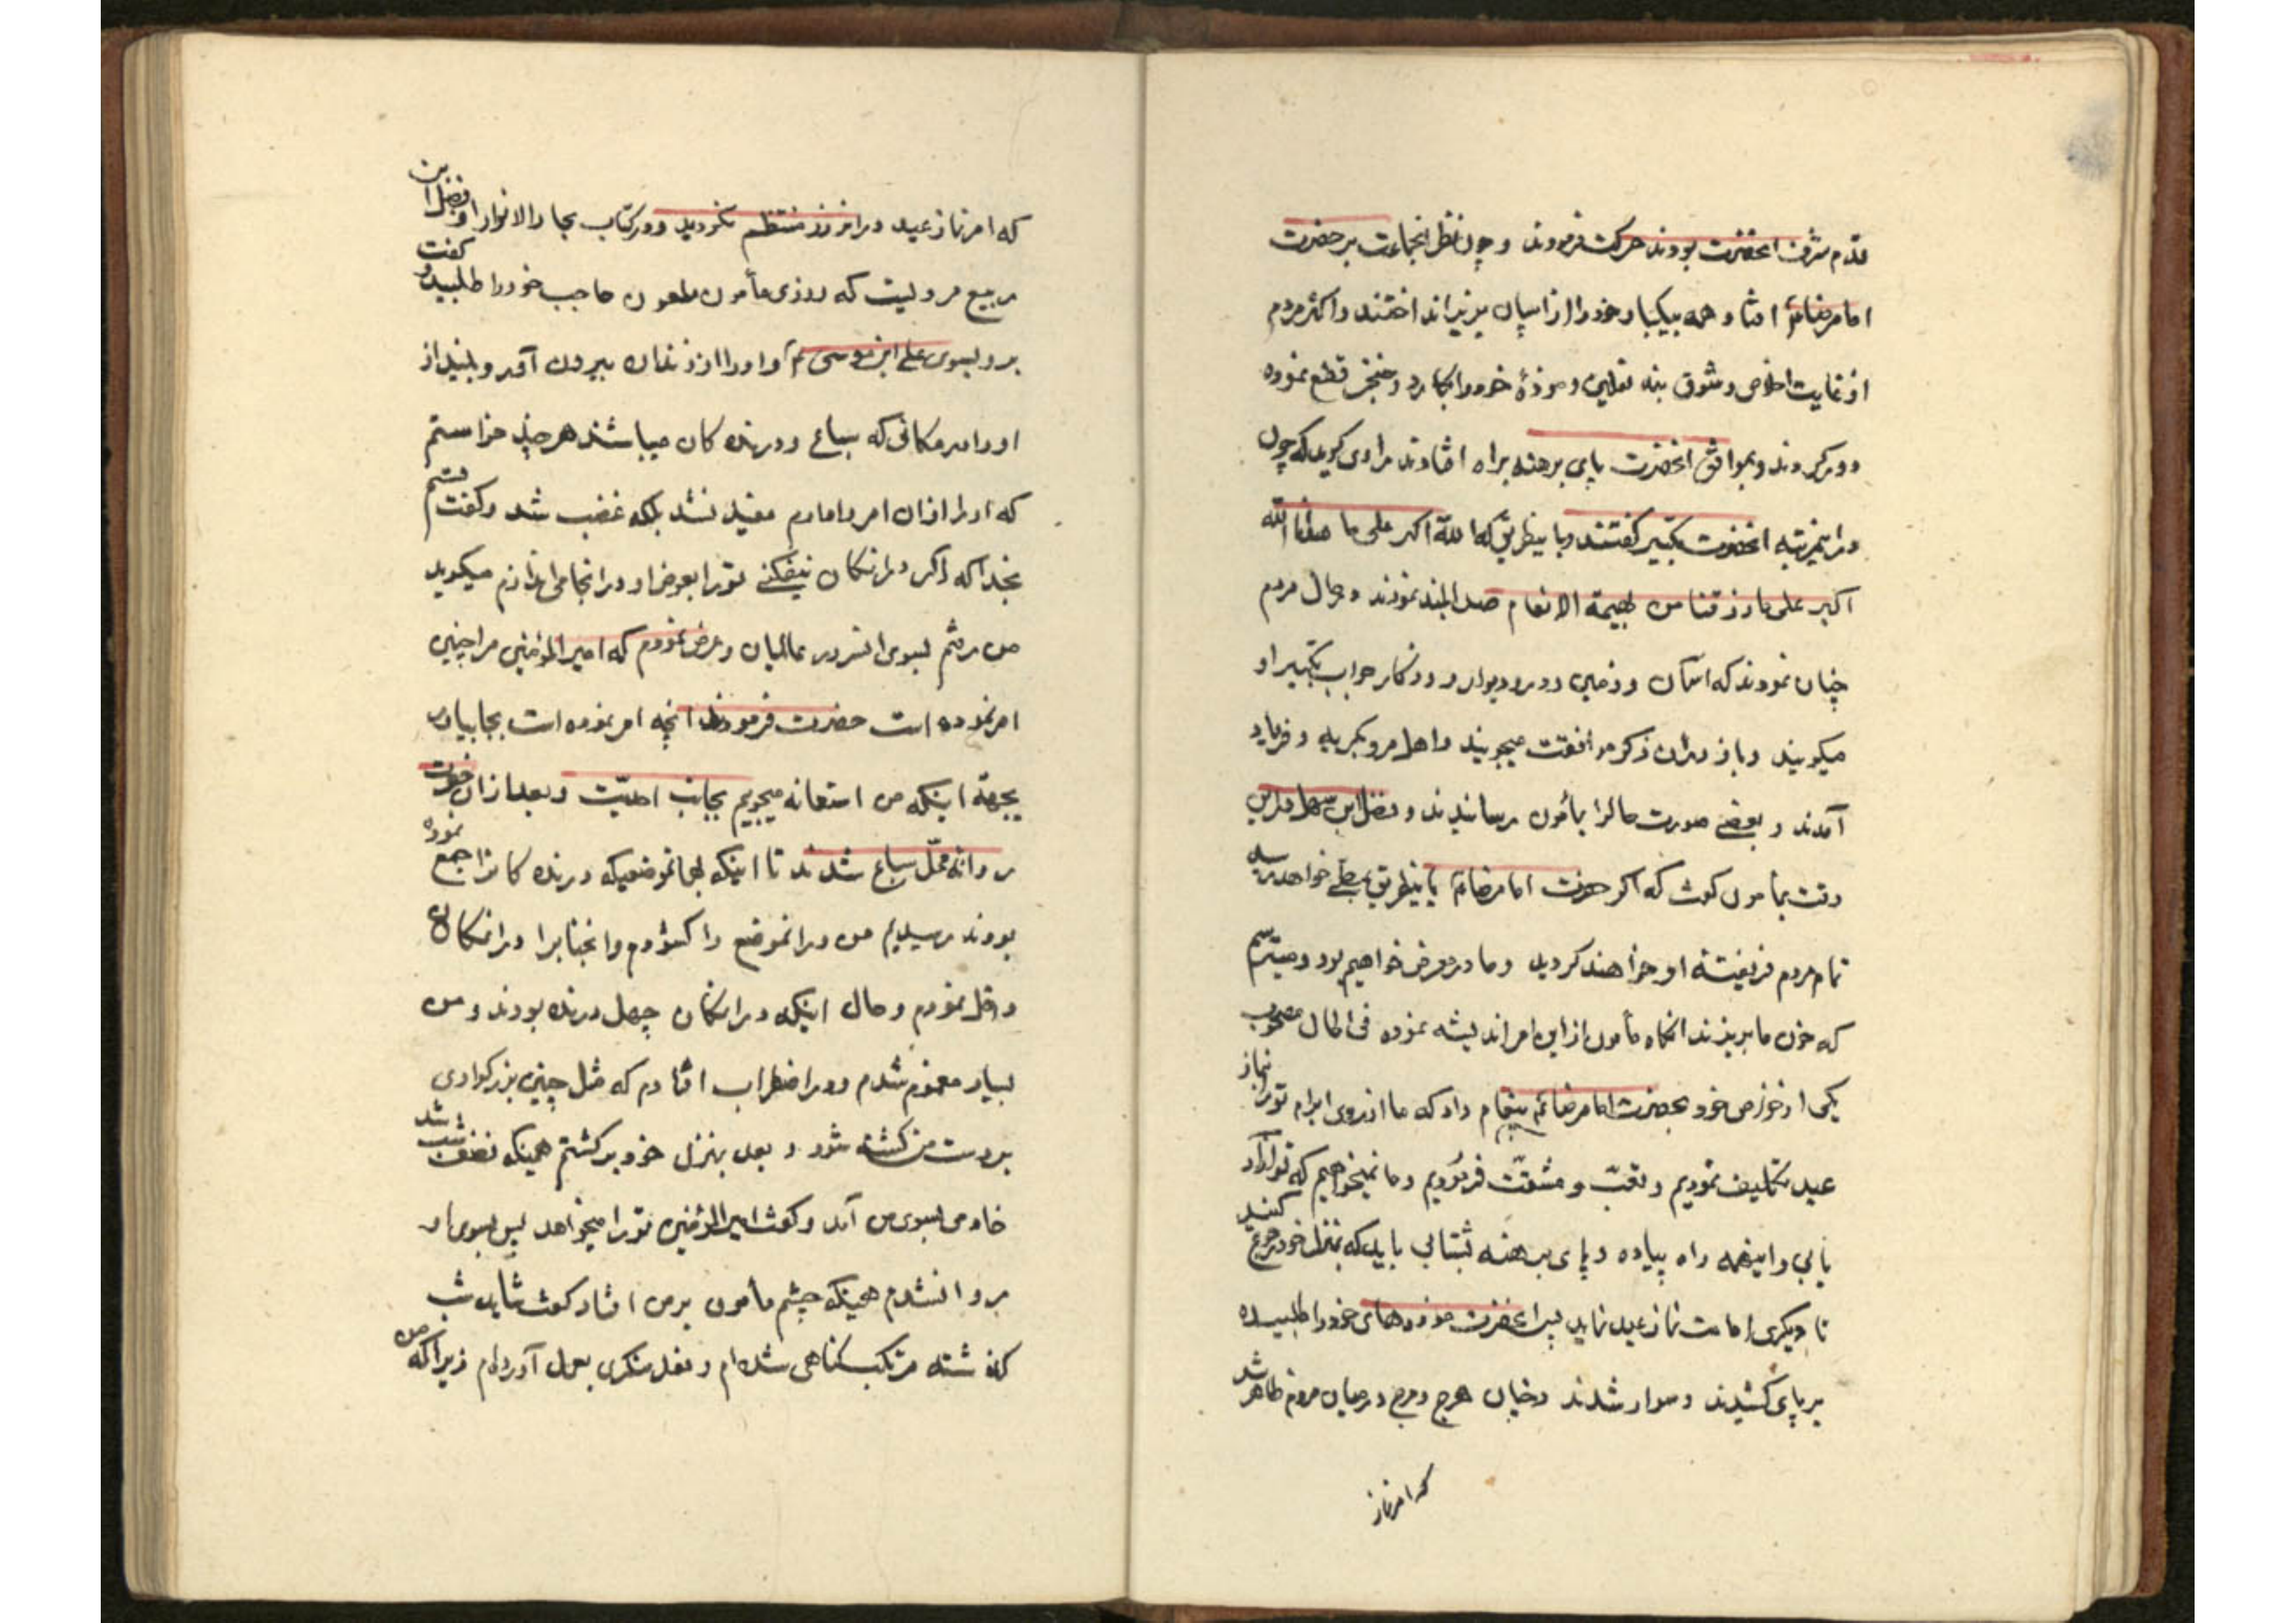 قدم شرف آنحضرت بودند حرکت فرمودند و چون نظر انجماعت بر حضرت
امام رضا افتاد همه بیکبار خود را از اسپان بزیر انداختند و اکثر مردم
از غایت اخلاص و شوق بند نعلین و موذهٔ خود را بکارد و خنجر قطع نموده
دور کردند و بموافق آنحضرت پای برهنه براه افتادند راوی کوید که چون
در انمرتبه آنحضرت تکبیر کفتند و باینطریق که الله اکبر علی ما هدانا الله
اکبر علی ما رزقنا من بهیمة الانعام صدا بلند نمودند و حال مردم
چنان نمودند که اسمان و زمین و در و دیوار و روزکار جواب تکبیر او
میکویند و باو دران ذکر موافقت میجویند و اهل مرو بکریه و فریاد
آمدند و بعضی صورت حالرا بمأمون رسانیدند و فضل ابن سهل دراین
وقت بمأمون کفت که اکر حضرت امام رضا باینطریق بمصلی خواهد رسید
تمام مردم فریفتهٔ او خواهند کردید و ما در معرض خواهیم بود و میترسم
که خون ما بریزند انکاه مأمون از این امر اندیشه نموده فی الحال مصحوب
یکی از خواص خود بحضرت امام رضا پیغام داد که ما از روی ابرام تو را نماز
عید تکلیف نمودیم و تعب و مشقت فرمودیم و ما نمیخواهیم که تو آزار
یابی و اینهمه راه پیاده و پای برهنه بشتابی باید که بمنزل خود رجوع کنید
تا دیکری امامت نماز عید نماید پس آنحضرت موزه های خود را طلبیده
بر پای کشیدند و سوار شدند و چنان هرج و مرج در میان مردم ظاهر شد
که امر نماز
که امر نماز عید در انروز منتظم نکردید و در کتاب بحار الانوار از فضل ابن
ربیع مرویست که روزی مأمون ملعون حاجب خود را طلبید و کفت
برو بسوی علی ابن موسی و او را از زندان بیرون آور و بینداز
او را در مکانی که سباع و درنده کان میباشند هر چند خواستم
که او را از ان امر وامادم مفید نشد بلکه غضب شد و کفت قسم
بخدا که اکر در انمکان نیفکنی تو را بعوض او در انجا می اندازم میکوید
من رفتم بسوی انسرور عالمیان و عرض نمودم که امیر المؤمنین مرا چنین
امر نموده است حضرت فرمودند انچه امر نموده است بجا بیاور
بجهة اینکه من استعانه میجویم بجانب احدیت و بعد از ان حضرت
روانه محل سباع شدند تا اینکه بهمان موضعیکه درنده کانرا جمع نموده
بودند رسیدیم من در انموضع را کشودم و انجنابرا در انمکان
داخل نمودم و حال اینکه در انمکان چهل درنده بودند و من
بسیار مغموم شدم و در اضطراب افتادم که مثل چنین بزرکواری
بر دست من کشته شود و بعد بمنزل خود برکشتم همینکه نصف شب شد
خادمی بسوی من آمد و کفت امیر المؤمنین تو را میخواهد پس بسوی او
روانشدم همینکه چشم مأمون بر من افتاد کفت شاید شب
کذشته مرتکب کناهی شده ام و فعل منکری بعمل آورده ام زیرا که من